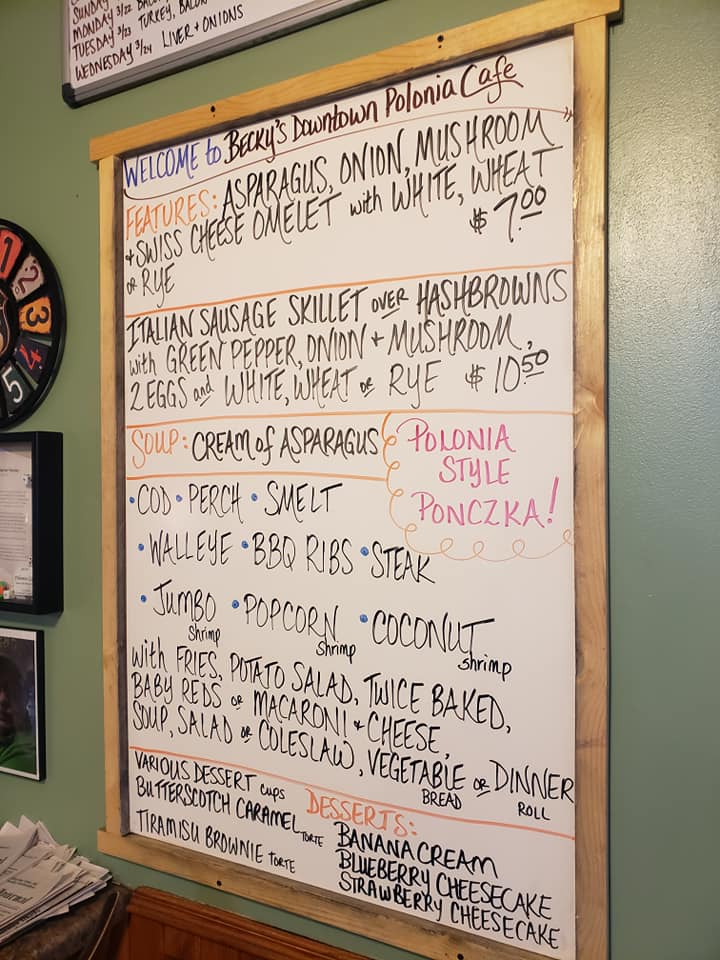 SUNDAY
MONDAY 3/22
TURKEY, BACON
TUESDAY 3/23
WEDNESDAY 3/24 LIVER + ONIONS
WELCOME to BECKY'S DOWNTOWN POLONIA CAFE
FEATURES: ASPARAGUS, ONION, MUSHROOM
+ SWISS CHEESE OMELET with WHITE, WHEAT
or RYE $7.00
ITALIAN SAUSAGE SKILLET OVER HASHBROWNS
with GREEN PEPPER, ONION + MUSHROOM,
2 EGGS and WHITE, WHEAT or RYE $10.50
SOUP: CREAM of ASPARAGUS
POLONIA
STYLE
PONCZKA!
• COD • PERCH • SMELT
• WALLEYE • BBQ RIBS • STEAK
• JUMBO Shrimp • POPCORN Shrimp • COCONUT shrimp
with FRIES, POTATO SALAD, TWICE BAKED,
BABY REDS or MACARONI + CHEESE,
SOUP, SALAD or COLESLAW, VEGETABLE BREAD or DINNER ROLL
DESSERTS:
VARIOUS DESSERT cups
BUTTERSCOTCH CARAMEL TORTE
TIRAMISU BROWNIE TORTE
BANANA CREAM
BLUEBERRY CHEESECAKE
STRAWBERRY CHEESECAKE
1
2
3
4
5